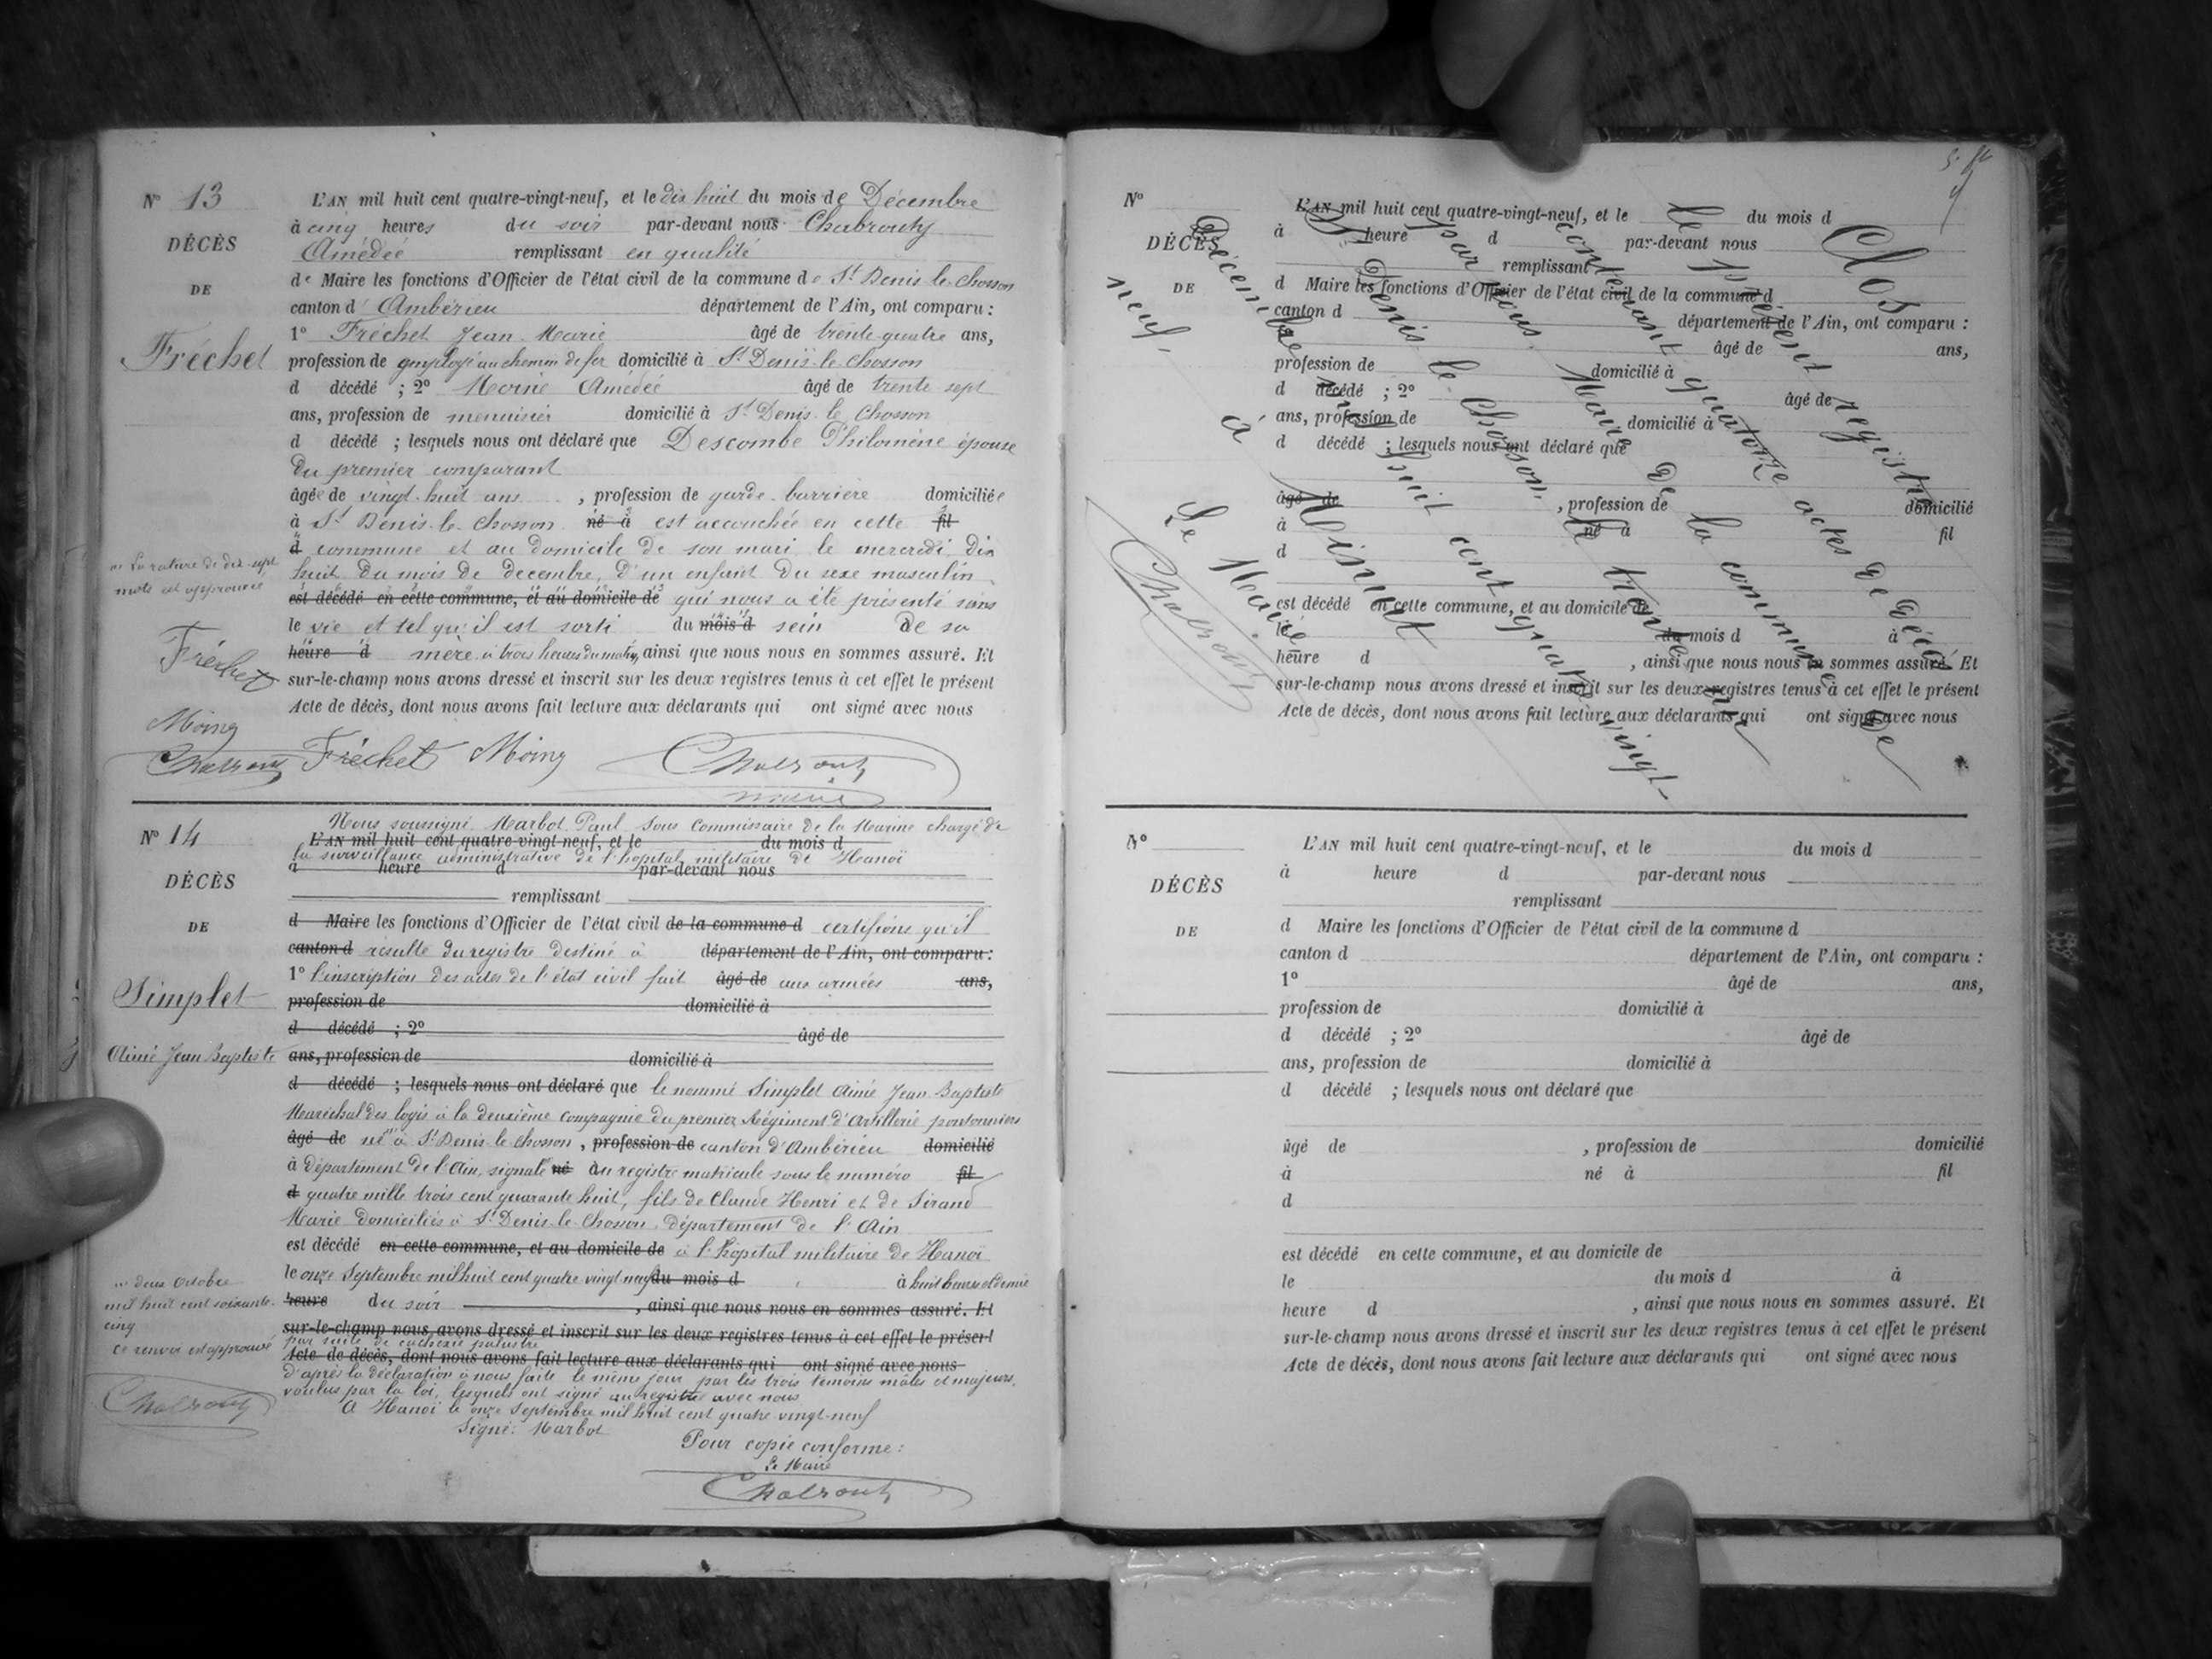 N° 13
DÉCÈS
DE
Fréchet
L'AN mil huit cent quatre-vingt-neuf, et le dix huit du mois de Décembre
à cinq heures du soir par-devant nous Chabrouty
Amédée remplissant en qualité
de Maire les fonctions d'Officier de l'état civil de la commune de St Denis-le-Chosson
canton d'Ambérieu département de l'Ain, ont comparu :
1° Fréchet Jean-Marie âgé de trente-quatre ans,
profession de employé au chemin de fer domicilié à St Denis-le-Chosson
d décédé ; 2° Amédée âgé de trente sept
ans, profession de menuisier domicilié à St Denis-le-Chosson
d décédé ; lesquels nous ont déclaré que Descombe Philomène épouse
du premier comparant
âgée de vingt-huit ans , profession de garde-barrière domiciliée
à St Denis-le-Chosson né à est accouchée en cette fil
d commune et au domicile de son mari le mercredi dix
huit du mois de decembre, d'un enfant du sexe masculin
est décédé en cette commune, et au domicile de qui nous a été présenté sans
le vie et tel qu'il est sorti du mois d sein de sa
heure d mère à trois heures du matin, ainsi que nous nous en sommes assuré. Et
sur-le-champ nous avons dressé et inscrit sur les deux registres tenus à cet effet le présent
Acte de décès, dont nous avons fait lecture aux déclarants qui ont signé avec nous
La rature de dix-sept
mots est approuvée
Fréchet
Moing
Chabrouty Fréchet Moing Chabrouty
maire
N° 14
DÉCÈS
DE
Simplet
Aimé Jean Baptiste
Nous soussigné Marbot Paul Sous Commissaire de la Marine chargé de
L'AN mil huit cent quatre-vingt-neuf, et le du mois d
la surveillance administrative de l'hopital militaire de Hanoï
à heure d par-devant nous
remplissant
d Maire les fonctions d'Officier de l'état civil de la commune d certifions qu'il
canton d résulte du registre destiné à département de l'Ain, ont comparu :
1° l'inscription des actes de l'état civil fait âgé de aux armées ans,
profession de domicilié à
d décédé ; 2° âgé de
ans, profession de domicilié à
d décédé ; lesquels nous ont déclaré que le nommé Simplet Aimé Jean-Baptiste
Maréchal des logis à la deuxième compagnie du premier Régiment d'Artillerie pontonniers
âgé de né à St Denis-le-Chosson , profession de canton d'Ambérieu domicilié
à département de l'Ain, signalé né au registre matricule sous le numéro fil
d quatre mille trois cent quarante huit, fils de Claude Henri et de Sirand
Marie domiciliés à St Denis-le-Chosson département de l'Ain
est décédé en cette commune, et au domicile de à l'hôpital militaire de Hanoï
le onze Septembre mil huit cent quatre vingt neuf du mois d à huit heures et demie
heure du soir , ainsi que nous nous en sommes assuré. Et
sur-le-champ nous avons dressé et inscrit sur les deux registres tenus à cet effet le présent
par suite de cachexie palustre
Acte de décès, dont nous avons fait lecture aux déclarants qui ont signé avec nous
d'après la déclaration à nous faite le même jour par les trois témoins mâles et majeurs,
voulus par la loi, lesquels ont signé au registre avec nous
A Hanoï le onze Septembre mil huit cent quatre-vingt-neuf
Signé : Marbot
Pour copie conforme :
Le Maire
Chabrouty
deux Octobre
mil huit cent soixante-
cinq
ce renvoi est approuvé
Chabrouty
N°
DÉCÈS
DE
L'AN mil huit cent quatre-vingt-neuf, et le du mois d
à heure d par-devant nous
remplissant
d Maire les fonctions d'Officier de l'état civil de la commune d
canton d département de l'Ain, ont comparu :
âgé de ans,
profession de domicilié à
d décédé ; 2° âgé de
ans, profession de domicilié à
d décédé ; lesquels nous ont déclaré que
âgé de , profession de domicilié
à né à fil
d
est décédé en cette commune, et au domicile de
le du mois d à
heure d , ainsi que nous nous en sommes assuré. Et
sur-le-champ nous avons dressé et inscrit sur les deux registres tenus à cet effet le présent
Acte de décès, dont nous avons fait lecture aux déclarants qui ont signé avec nous
Clos
le présent registre
contenant quatorze actes de Décès
par nous, Maire de la commune de
St Denis-le-Chosson, le trente
Décembre mil huit cent quatre vingt-
neuf.
à
Le Maire
Chabrouty
N°
DÉCÈS
DE
L'AN mil huit cent quatre-vingt-neuf, et le du mois d
à heure d par-devant nous
remplissant
d Maire les fonctions d'Officier de l'état civil de la commune d
canton d département de l'Ain, ont comparu :
1° âgé de ans,
profession de domicilié à
d décédé ; 2° âgé de
ans, profession de domicilié à
d décédé ; lesquels nous ont déclaré que
âgé de , profession de domicilié
à né à fil
d
est décédé en cette commune, et au domicile de
le du mois d à
heure d , ainsi que nous nous en sommes assuré. Et
sur-le-champ nous avons dressé et inscrit sur les deux registres tenus à cet effet le présent
Acte de décès, dont nous avons fait lecture aux déclarants qui ont signé avec nous